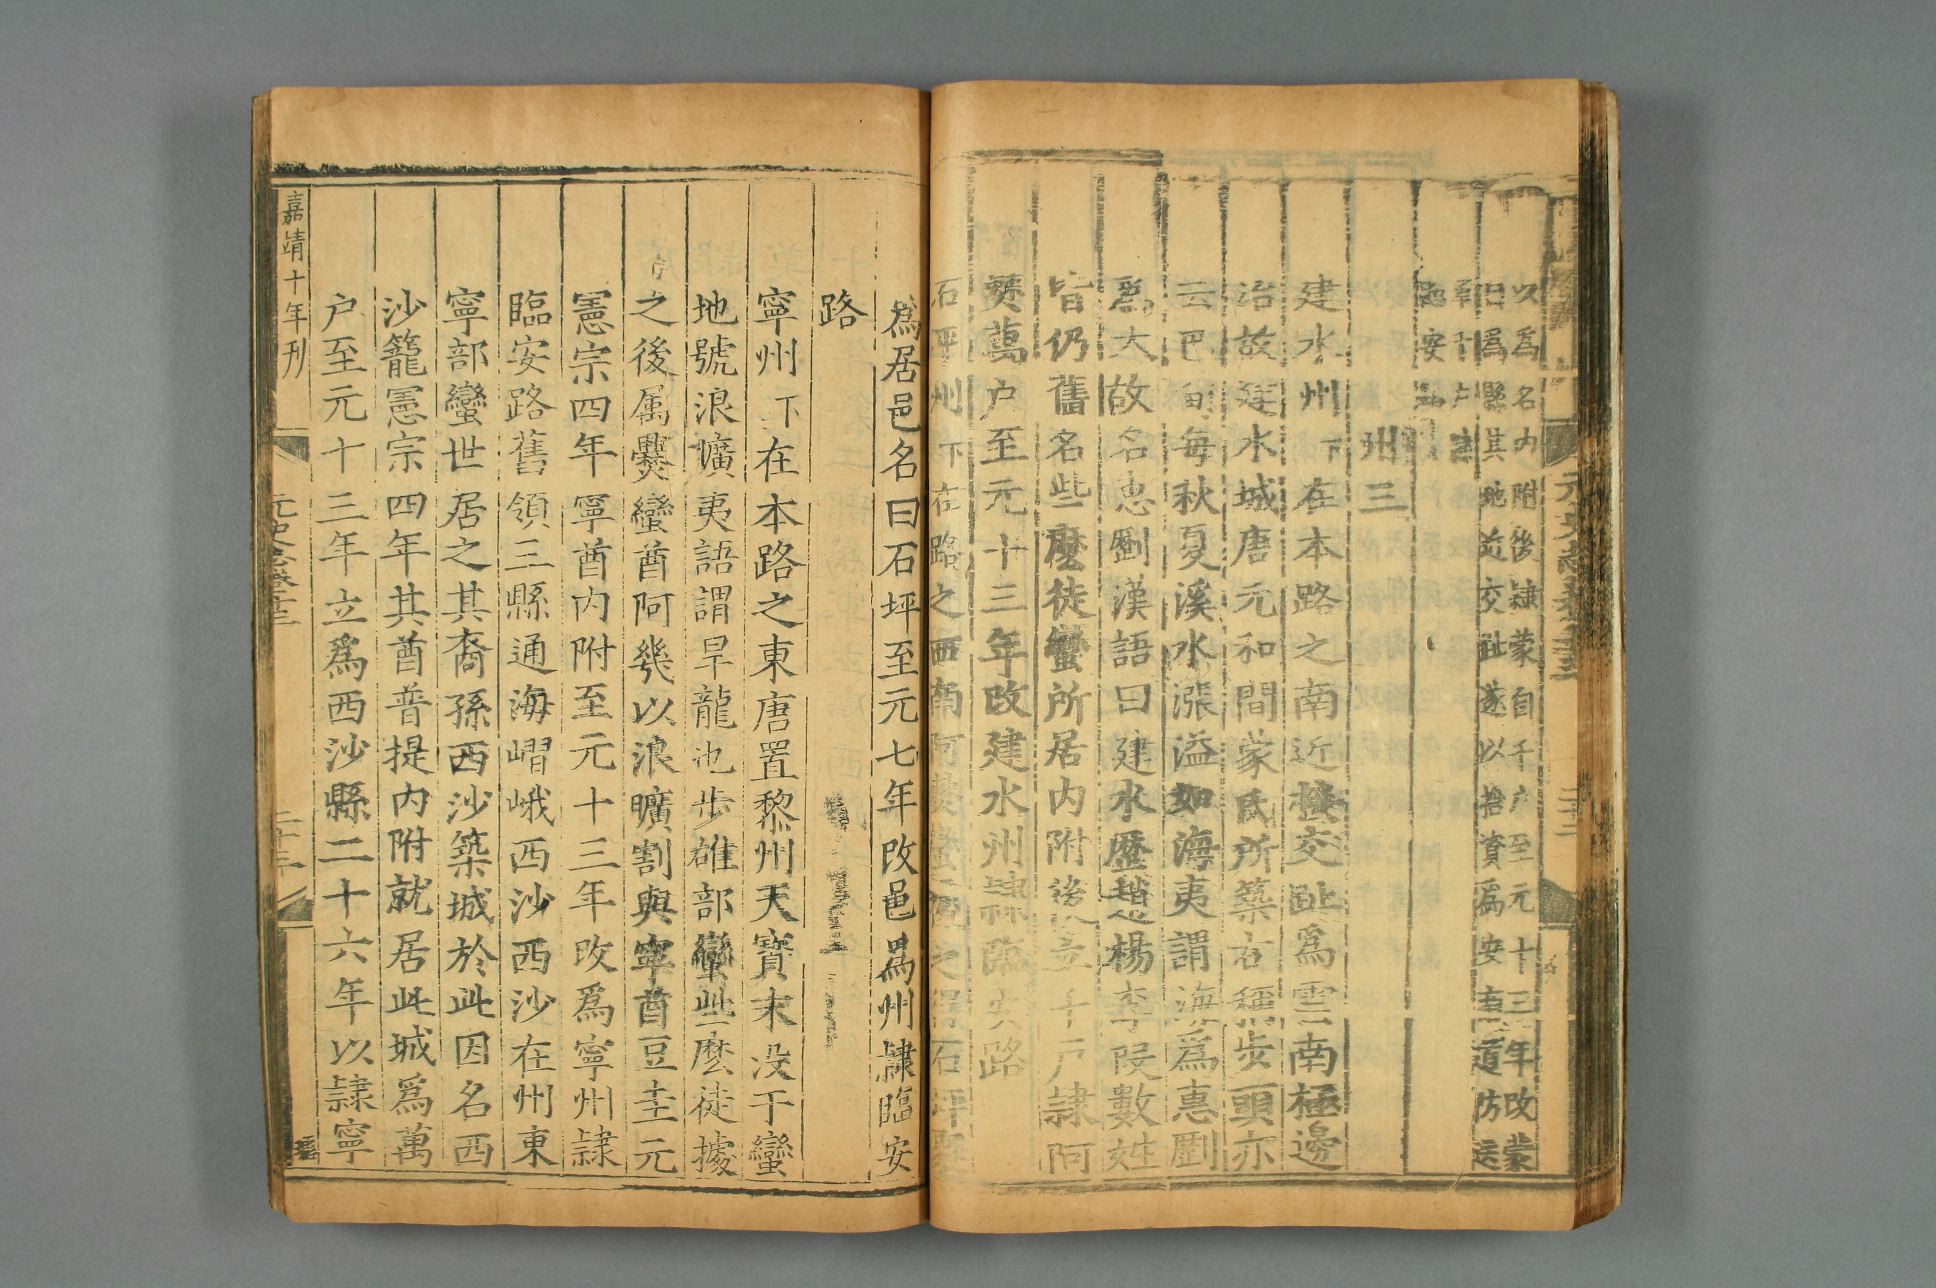 以爲名内附後隸蒙自千户至元十三年改蒙
自爲縣其地近交趾遂以捨資爲安南道防送
軍千户隸
臨安路
州三
建水州下在本路之南近接交趾爲雲南極邊
治故建水城唐元和間蒙氏所築古稱步頭亦
云巴甸每秋夏溪水漲溢如海夷謂海爲惠劉
爲大故名惠劉漢語曰建水歷趙楊李段數姓
皆仍舊名些麽徒蠻所居内附後立千户隸阿
僰萬户至元十三年改建水州隸臨安路
石坪州下在路之西南阿僰蠻之得石坪聚
爲居邑名曰石坪至元七年改邑爲州隸臨安
路
寧州下在本路之東唐置黎州天寶末没于蠻
地號浪曠夷語謂旱龍也步雄部蠻些麽徒據
之後属爨蠻酋阿幾以浪曠割與寧酋豆圭元
憲宗四年寧酋内附至元十三年改爲寧州隸
臨安路舊領三縣通海嶍峨西沙西沙在州東
寧部蠻世居之其裔孫西沙築城於此因名西
沙籠憲宗四年其酋普提内附就居此城爲萬
户至元十三年立爲西沙縣二十六年以隸寧
嘉靖十年刊
元史志卷十三
二十三